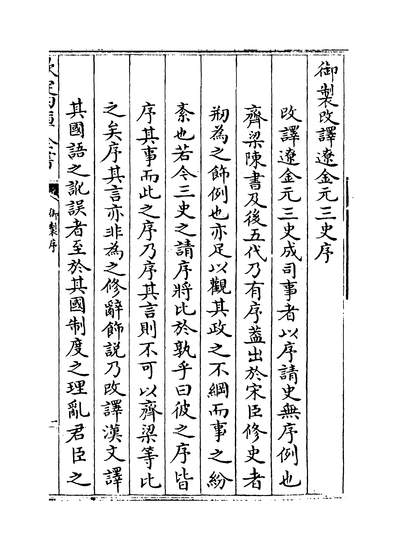 御製改譯遼金元三史序
改譯遼金元三史成司事者以序請史無序例也
齊梁陳書及後五代乃有序葢出於宋臣修史者
剏為之飾例也亦足以觀其政之不綱而事之紛
紊也若令三史之請序將比於孰乎曰彼之序皆
序其事而此之序乃序其言則不可以齊梁等比
之矣序其言亦非為之修辭飾說乃改譯漢文譯
其國語之訛誤者至於其國制度之理亂君臣之
欽定四庫全書
御製序
一